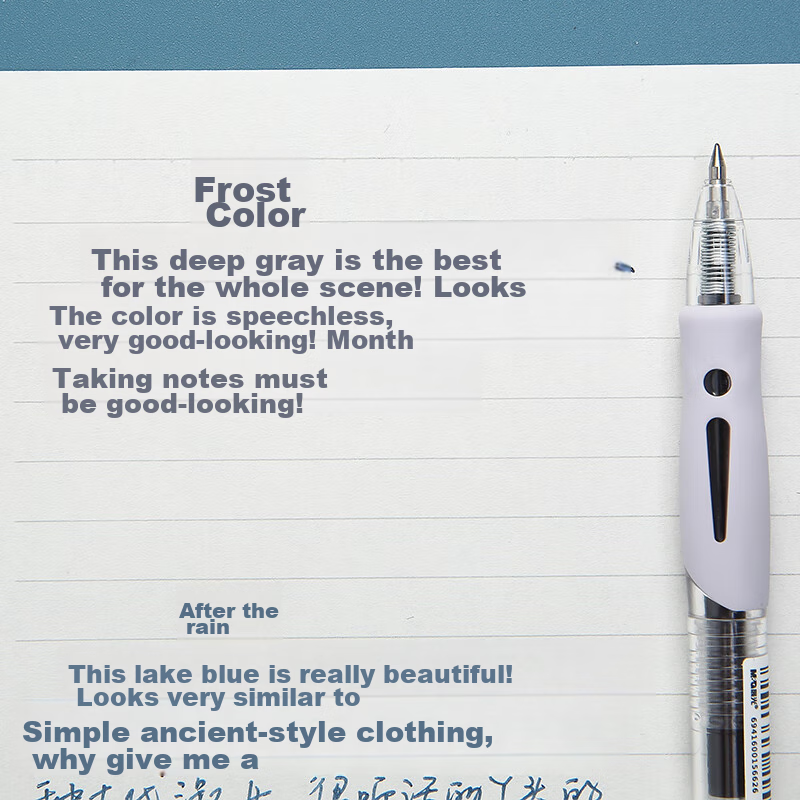 Frost
Color
This deep gray is the best
for the whole scene! Looks
The color is speechless,
very good-looking! Month
Taking notes must
be good-looking!
After the
rain
This lake blue is really beautiful!
Looks very similar to
Simple ancient-style clothing,
why give me a
很听话的丫头的
M&G 晨光
6941600156626